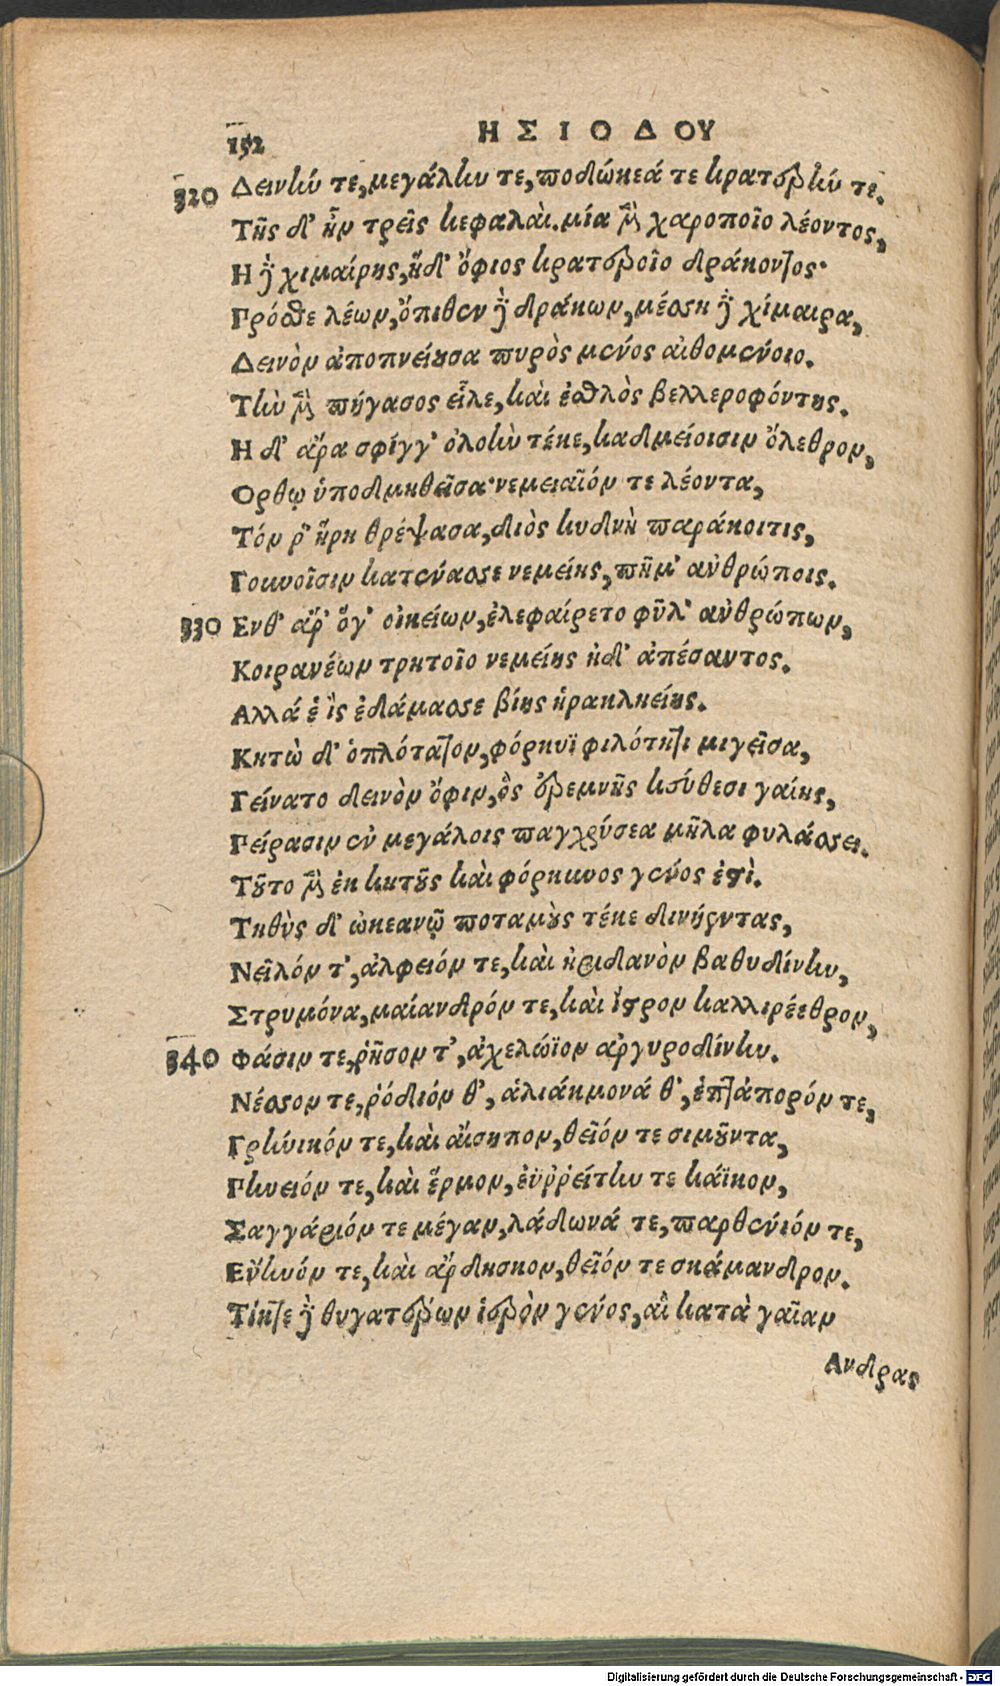 152
ΗΣΙΟΔΟΥ
320 Δεινήν τε, μεγάλην τε, ποδώκεά τε κρατερήν τε.
Τῆς δ' ἦν τρεῖς κεφαλαὶ. μία μὲν χαροποῖο λέοντος,
Η δὲ χιμαίρης, ἥδ' ὄφιος κρατεροῖο δράκοντος·
Πρόσθε λέων, ὄπιθεν δὲ δράκων, μέσση δὲ χίμαιρα,
Δεινὸν ἀποπνείουσα πυρὸς μένος αἰθομένοιο.
Τὴν μὲν πήγασος εἷλε, καὶ ἐσθλὸς βελλεροφόντης.
Η δ' ἄρα σφίγγ' ὀλοὴν τέκε, καδμείοισιν ὄλεθρον,
Ορθῳ ὑποδμηθεῖσα· νεμειαῖόν τε λέοντα,
Τόν ῥ' ἥρη θρέψασα, διὸς κυδνὴ παράκοιτις,
Γουνοῖσιν κατένασσε νεμείης, πῆμ' ἀνθρώποις.
330 Ενθ' ἄρ' ὅγ' οἰκείων, ἐλεφαίρετο φῦλ' ἀνθρώπων,
Κοιρανέων τρητοῖο νεμείης ἠδ' ἀπέσαντος.
Αλλά ἑ ἲς ἐδάμασσε βίης ἡρακληείης.
Κητὼ δ' ὁπλότατον, φόρκυϊ φιλότητι μιγεῖσα,
Γείνατο δεινὸν ὄφιν, ὃς ἐρεμνῆς κεύθεσι γαίης,
Πείρασιν ἐν μεγάλοις παγχρύσεα μῆλα φυλάσσει.
Τοῦτο μὲν ἐκ κητοῦς καὶ φόρκυνος γένος ἐστὶ.
Τηθὺς δ' ὠκεανῷ ποταμοὺς τέκε δινήεντας,
Νεῖλόν τ', ἀλφειόν τε, καὶ ἠριδανὸν βαθυδίνην,
Στρυμόνα, μαίανδρόν τε, καὶ ἴστρον καλλιρέεθρον,
340 Φάσιν τε, ῥῆσον τ', ἀχελώϊον ἀργυροδίνην.
Νέσσον τε, ῥόδιόν θ', ἁλιάκμονά θ', ἑπτάπορόν τε,
Γρήνικόν τε, καὶ αἴσηπον, θεῖόν τε σιμοῦντα,
Πηνειόν τε, καὶ ἕρμον, ἐϋῤῥείτην τε κάϊκον,
Σαγγάριόν τε μέγαν, λάδωνά τε, παρθένιόν τε,
Εὔηνόν τε, καὶ ἄρδησκον, θεῖόν τε σκάμανδρον.
Τίκτε δὲ θυγατέρων ἱερὸν γένος, αἳ κατὰ γαῖαν
Ανδρας
Digitalisierung gefördert durch die Deutsche Forschungsgemeinschaft - DFG